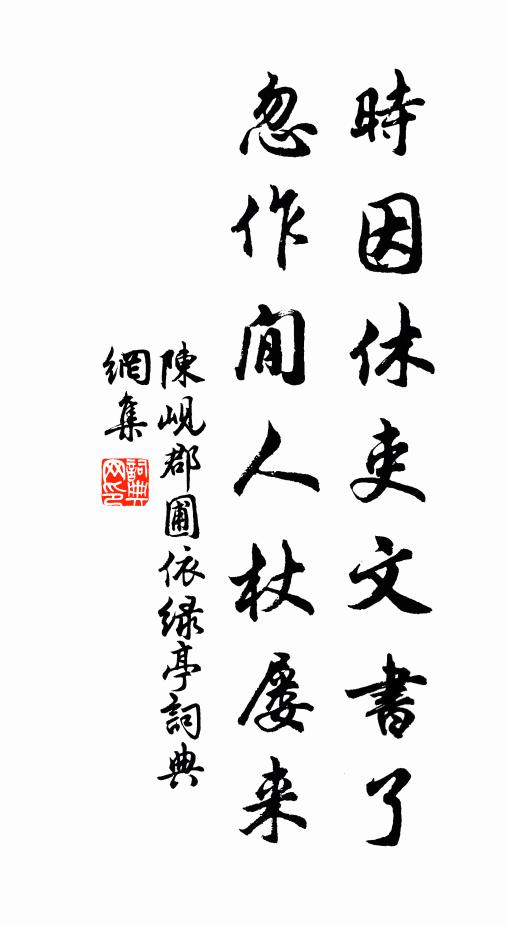 時因休吏文書了
忽作閒人杖屨来
陳峴郡圃依緑亭詞典
網集
詞典
网印